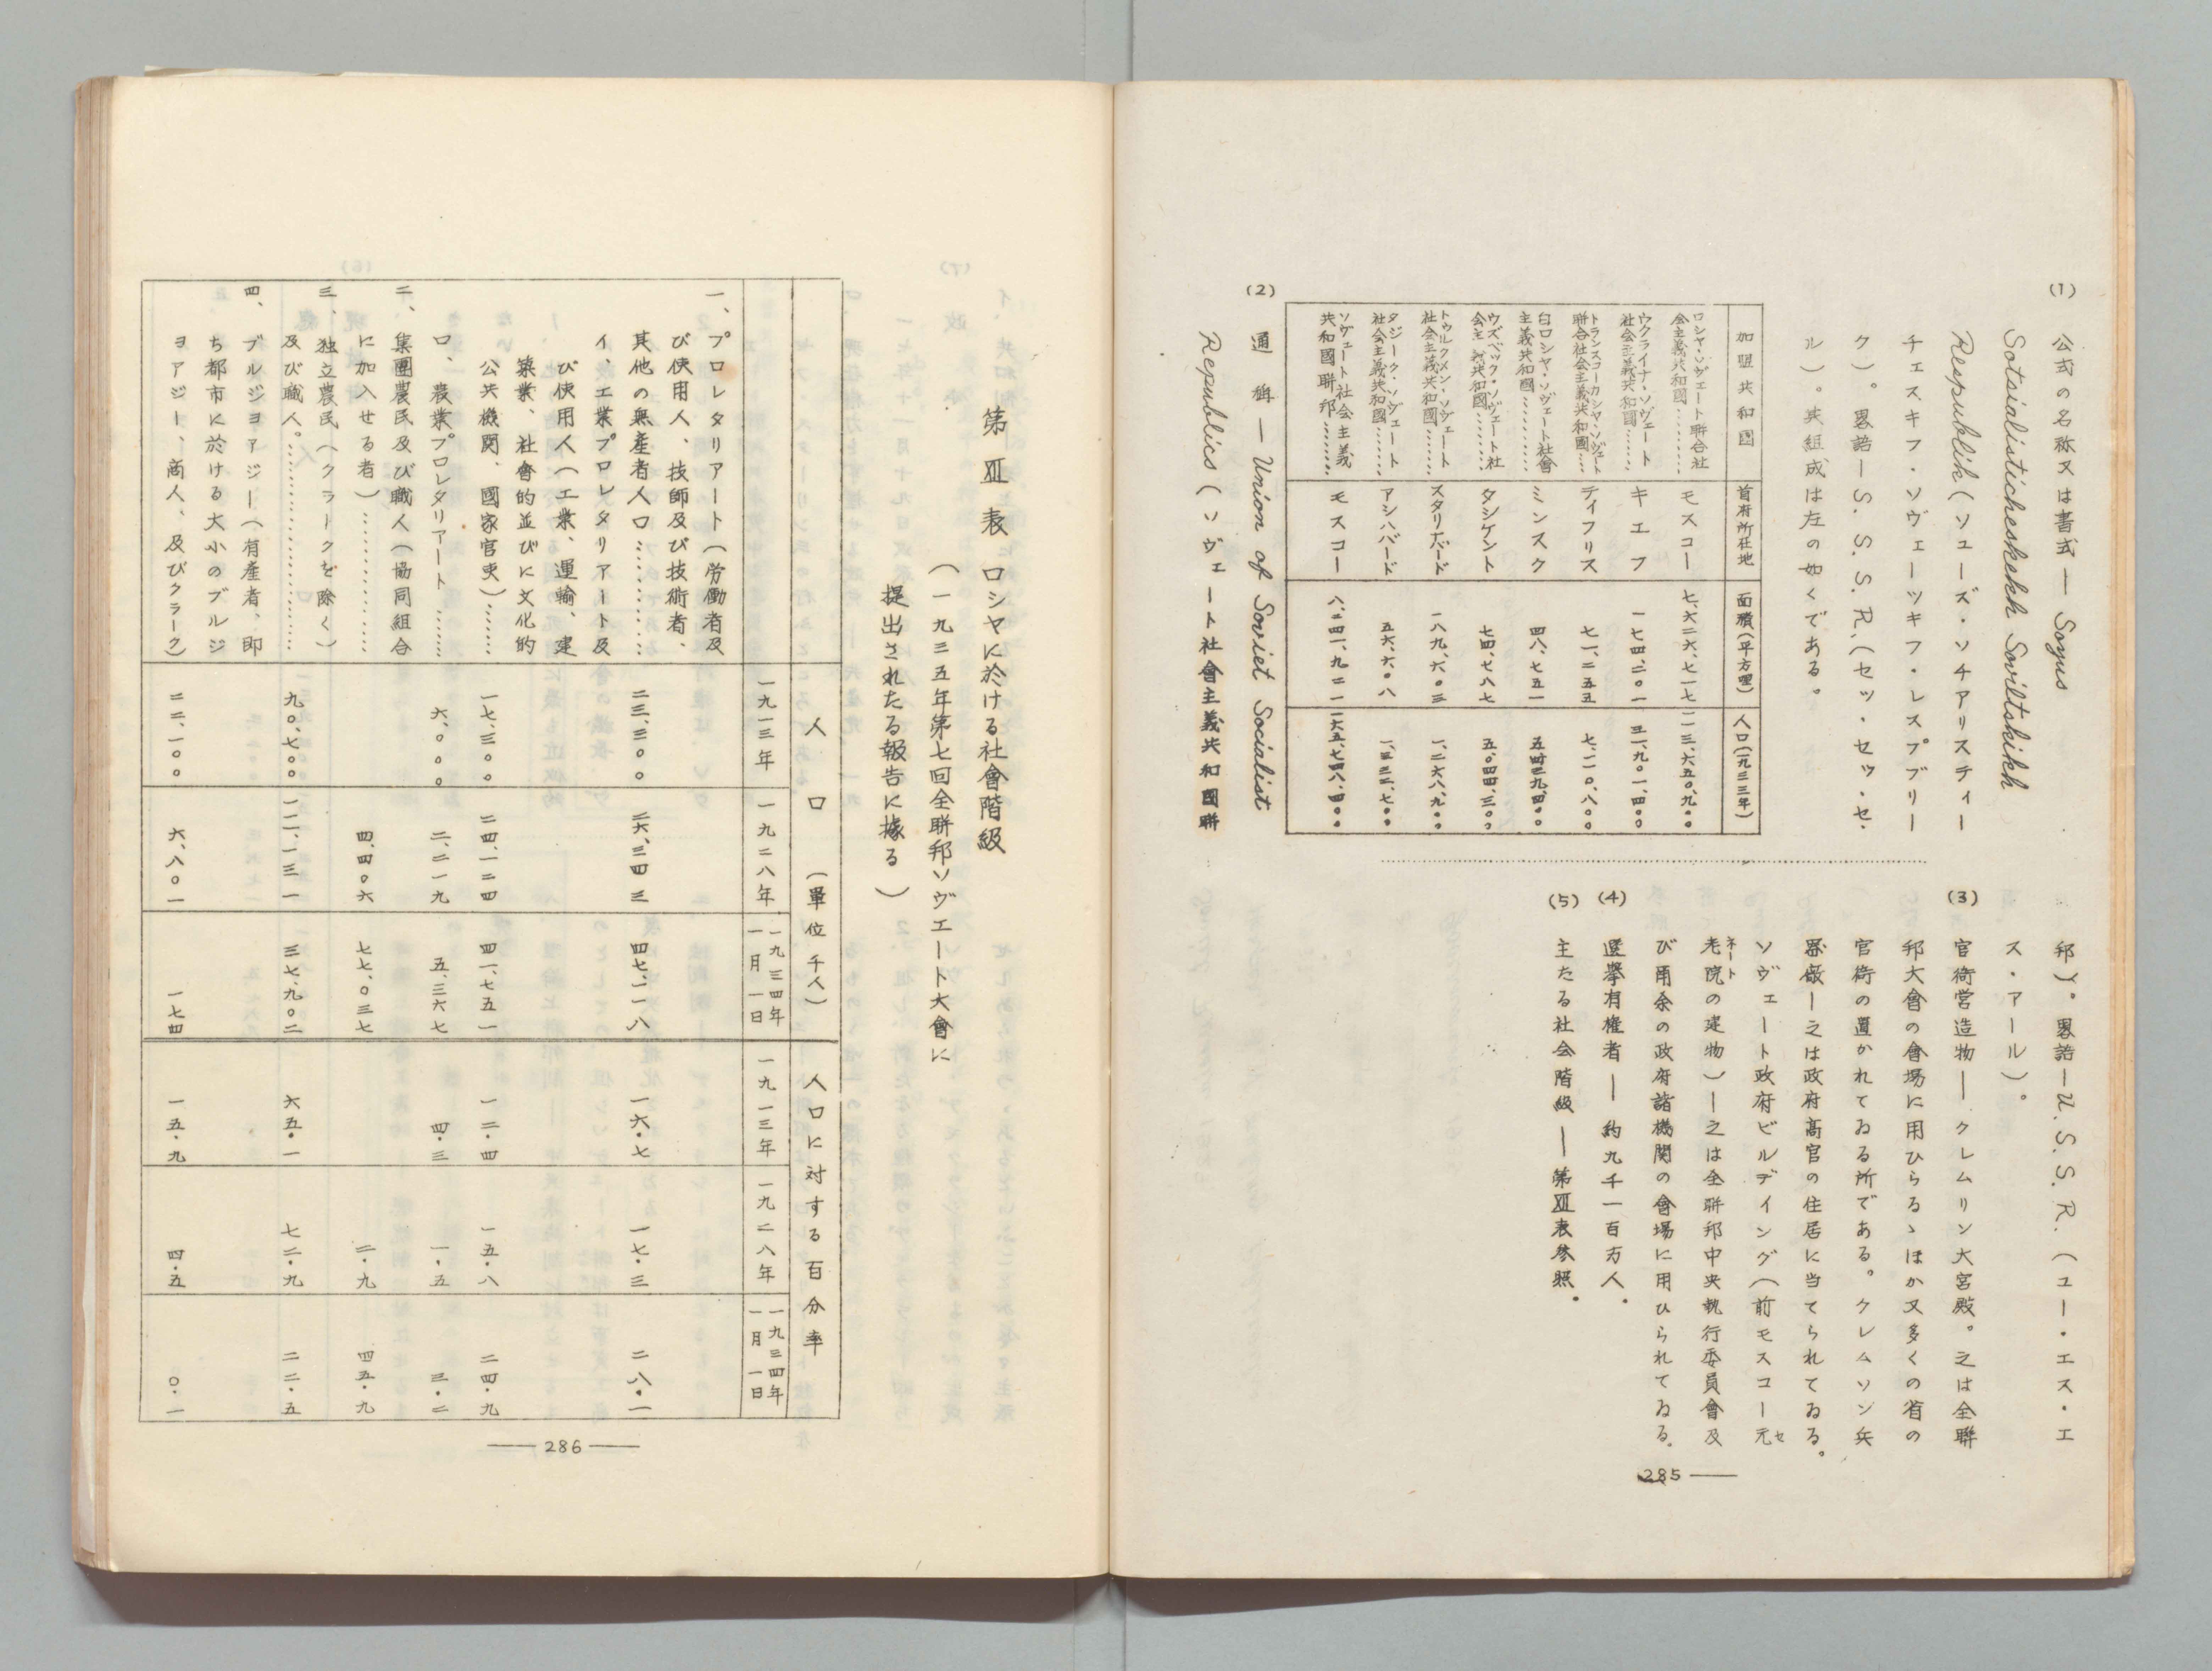 (1) 公式の名称又は書式 — Soyus
Sotsialisticheskekh Soviltskikh
Respublik (ソユーズ・ソチアリスティー
チェスキフ・ソヴェーツキフ・レスプブリー
ク)。畧語—S. S. S. R.(セッ・セッ・セ・
ル)。其組成は左の如くである。
加盟共和国 首府所在地 面積(平方哩) 人口(一九三三年)
ロシヤ・ソヴェート聯合社
会主義共和国…… モスコー 七、六二六、七一七 一一三、六五〇、九〇〇
ウクライナ・ソヴェート
社会主義共和国…… キエフ 一七四、二〇一 三一、九〇一、四〇〇
トランスコーカシヤ・ソヴェート
聯合社会主義共和國… ティフリス 七一、二五五 七、一一〇、八〇〇
白ロシヤ・ソヴェート社會
主義共和国…… ミンスク 四八、七五一 五、四三九、四〇〇
ウズベック・ソヴェート社
会主義共和國…… タシケント 七四、七八七 五、〇四四、三〇〇
トゥルクメン・ソヴェート
社会主義共和国…… スタリナバード 一八九、六〇三 一、二六八、九〇〇
タジーク・ソヴェート
社会主義共和国…… アシハバード 五六、六〇八 一、三三二、七〇〇
ソヴェート社会主義
共和國聯邦…… モスコー 八、二四一、九二一 一六五、七四八、四〇〇
(2) 通稱 — Union of Soviet Socialist
Republics (ソヴェート社會主義共和國聯
邦)。畧語—U. S. S. R. (ユー・エス・エ
ス・アール)。
(3) 官衙営造物 — クレムリン大宮殿。之は全聯
邦大會の會場に用ひらるゝほか又多くの省の
官衙の置かれてゐる所である。クレムソン兵
器廠—之は政府高官の住居に当てられてゐる。
ソヴェート政府ビルデイング(前モスコー元セ
老院ネートの建物)—之は全聯邦中央執行委員會及
び甭余の政府諸機関の會場に用ひられてゐる。
(4) 選挙有権者 — 約九千一百万人。
(5) 主たる社会階級 — 第Ⅻ表参照。
285 —
第Ⅻ表 ロシヤに於ける社會階級
(一九三五年第七回全聯邦ソヴエート大會に
提出されたる報告に據る)
人口 (單位千人) 人口に対する百分率
一九一三年 一九二八年 一九三四年一月一日 一九一三年 一九二八年 一九三四年一月一日
一、プロレタリアート(労働者及
び使用人、技師及び技術者、
其他の無産者人口………… 二三、三〇〇 二六、三四三 四七、一一八 一六・七 一七・三 二八・一
イ、工業プロレタリアート及
び使用人(工業、運輸、建
築業、社會的並びに文化的
公共機関、國家官吏)…… 一七、三〇〇 二四、一二四 四一、七五一 一二・四 一五・八 二四・九
ロ、農業プロレタリアート…… 六、〇〇〇 二、二一九 五、三六七 四・三 一・五 三・二
二、集團農民及び職人(協同組合
に加入せる者)………… 四、四〇六 七七、〇三七 二・九 四五・九
三、独立農民(クラークを除く)
及び職人。………… 九〇、七〇〇 一一一、一三一 三七、九〇二 六五・一 七二・九 二二・五
四、ブルジヨアジー(有産者、即
ち都市に於ける大小のブルジ
ヨアジー、商人、及びクラーク) 二二、一〇〇 六、八〇一 一七四 一五・九 四・五 〇・一
— 286 —